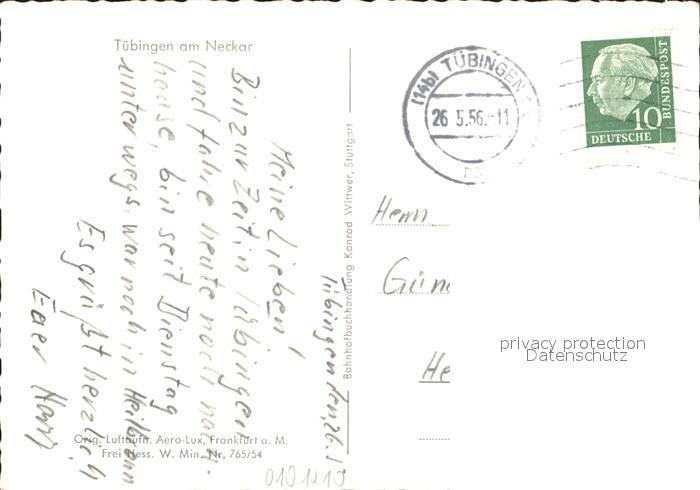 Tübingen am Neckar
Tübingen den, 26.
Meine Lieben!
Bin zur Zeit in Tübingen
und fahre heute noch nach-
hause, bin seit Dienstag
unterwegs, war noch in Heilbronn
Es grüßt herzlich
Euer
Orig. Luftaufn. Aero-Lux, Frankfurt a. M.
Frei Hess. W. Min. Nr. 765/54
0101219
Bahnhofbuchhandlung Konrad Wittwer, Stuttgart
(14b) TÜBINGEN
26.5.56.-11
10
DEUTSCHE
BUNDESPOST
Herrn
privacy protection
Datenschutz